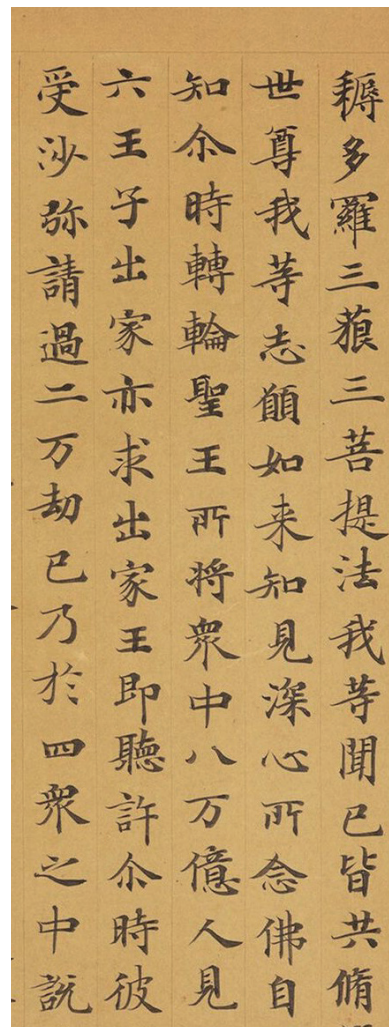 耨多羅三藐三菩提法我等聞已皆共脩
世尊我等志願如来知見深心所念佛自
知尒時轉輪聖王所将衆中八万億人見
六王子出家亦求出家王即聽許尒時彼
受沙弥請過二万劫已乃於四衆之中說